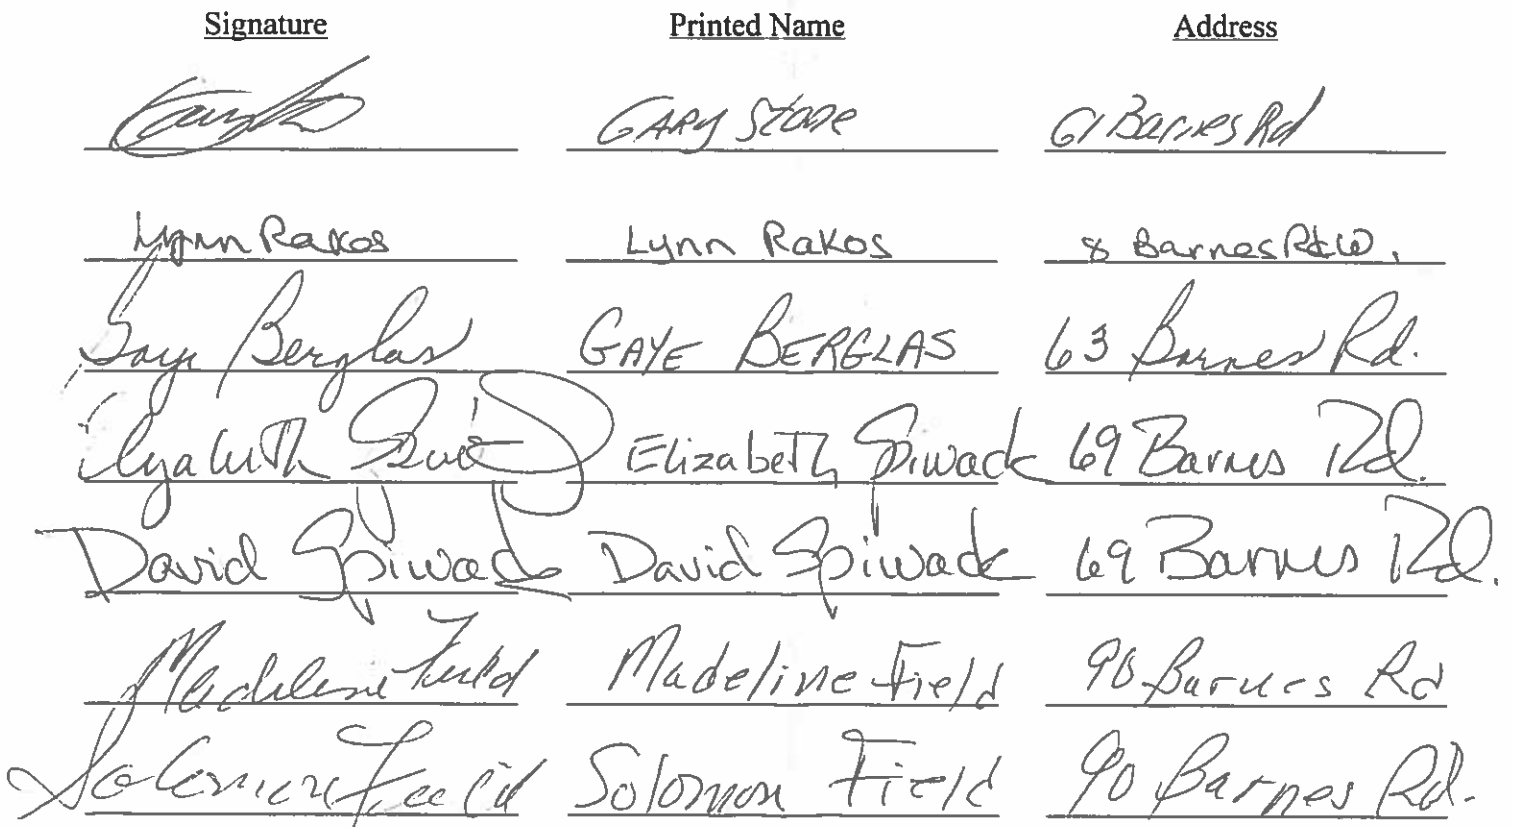 Signature Printed Name Address
GARY Stone 61 Barnes Rd
Lynn Rakos Lynn Rakos 8 Barnes Rd W.
Gaye Berglas GAYE BERGLAS 63 Barnes Rd.
Elizabeth Spiwack Elizabeth Spiwack 69 Barnes Rd.
David Spiwack David Spiwack 69 Barnes Rd.
Madeline Field Madeline Field 90 Barnes Rd
Solomon Field Solomon Field 90 Barnes Rd.